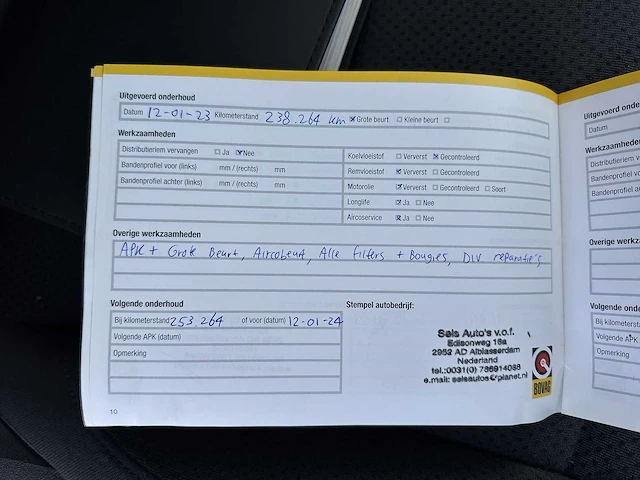 Uitgevoerd onderhoud
Datum 12-01-23 Kilometerstand 238.264 km ☒ Grote beurt ☐ Kleine beurt ☐
Werkzaamheden
Distributieriem vervangen ☐ Ja ☒ Nee
Bandenprofiel voor (links) mm / (rechts) mm
Bandenprofiel achter (links) mm / (rechts) mm
Koelvloeistof ☐ Ververst ☒ Gecontroleerd
Remvloeistof ☒ Ververst ☐ Gecontroleerd
Motorolie ☒ Ververst ☐ Gecontroleerd ☐ Soort
Longlife ☒ Ja ☐ Nee
Aircoservice ☒ Ja ☐ Nee
Overige werkzaamheden
APK + Grote Beurt, Aircobeurt, Alle filters + Bougies, DIV reparatie's
Volgende onderhoud
Bij kilometerstand 253.264 of voor (datum) 12-01-24
Volgende APK (datum)
Opmerking
Stempel autobedrijf:
Sels Auto's v.o.f.
Edisonweg 16a
2952 AD Alblasserdam
Nederland
tel.:0031(0) 786914088
e.mail: selsautos@planet.nl
BOVAG
10
Uitgevoerd onde
Datum
Werkzaamheden
Distributieriem v
Bandenprofiel vo
Bandenprofiel ac
Overige werkz
Volgende onde
Bij kilometerst
Volgende APK
Opmerking